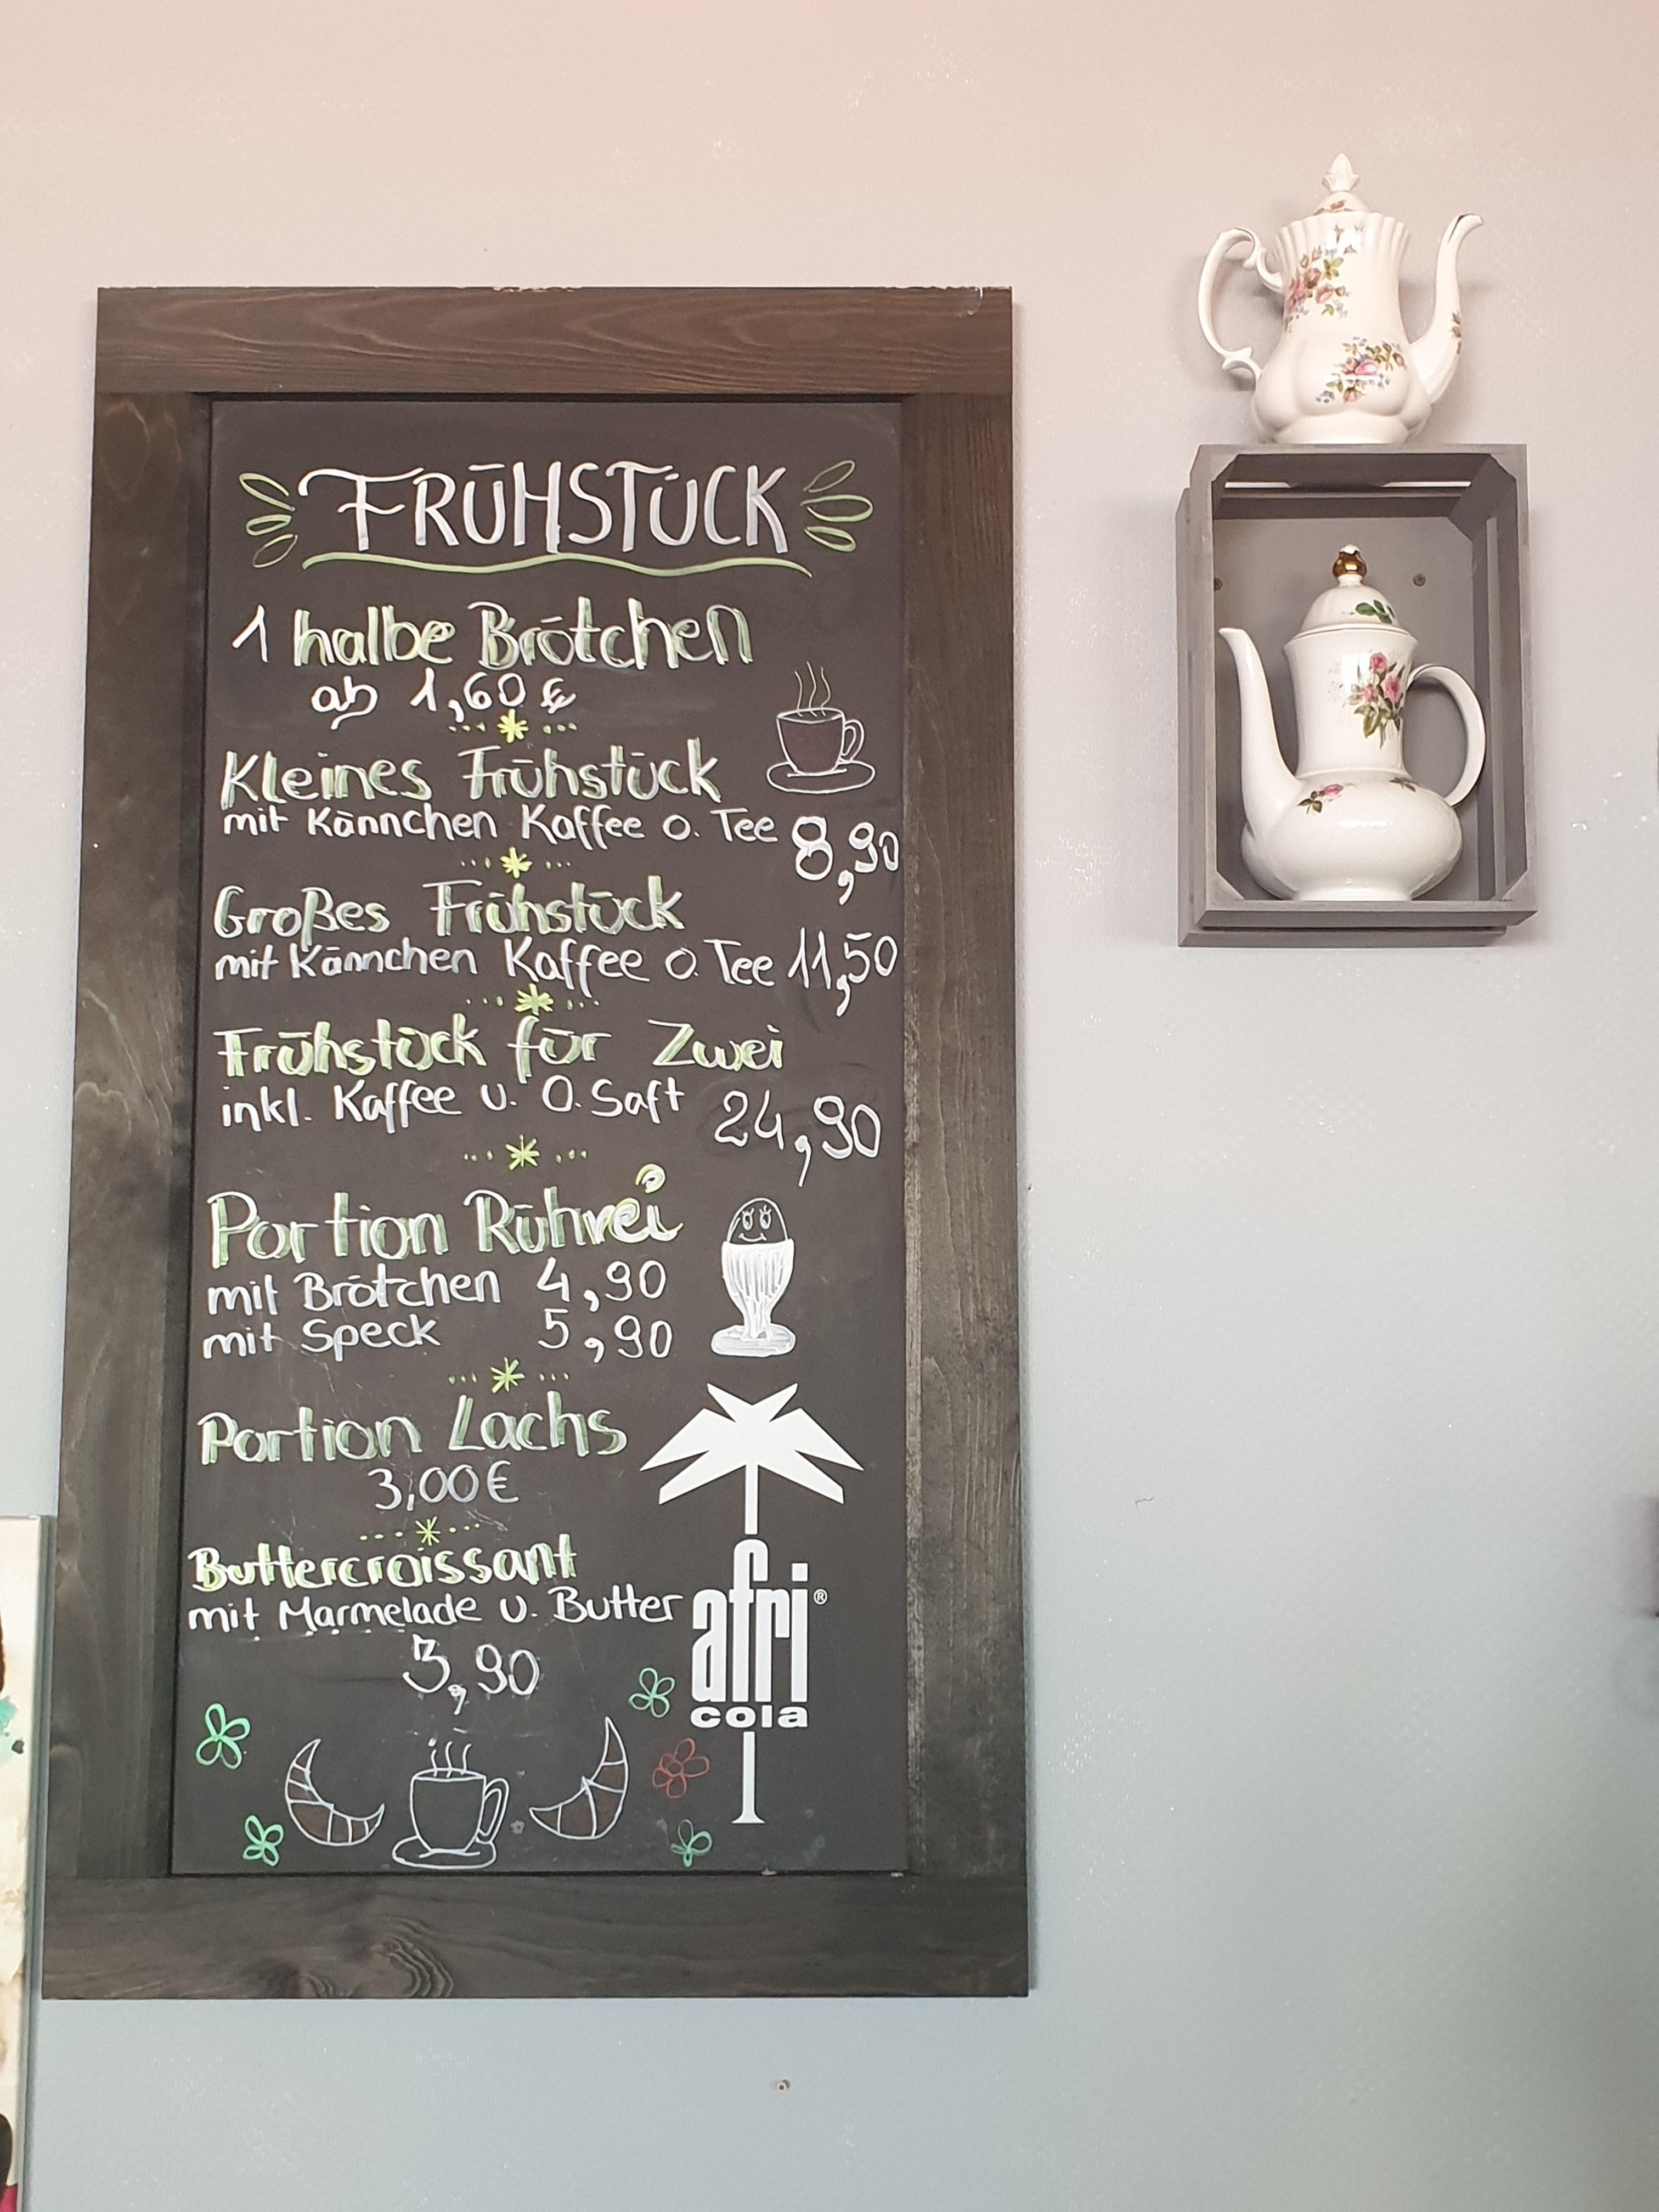 FRÜHSTÜCK
1 halbe Brötchen
ab 1,60 €
Kleines Frühstück
mit Kännchen Kaffee o. Tee 8,90
Großes Frühstück
mit Kännchen Kaffee o. Tee 11,50
Frühstück für Zwei
inkl. Kaffee u. O. Saft 24,90
Portion Rührei
mit Brötchen 4,90
mit Speck 5,90
Portion Lachs
3,00€
Buttercroissant
mit Marmelade u. Butter
3,90
afri®
cola